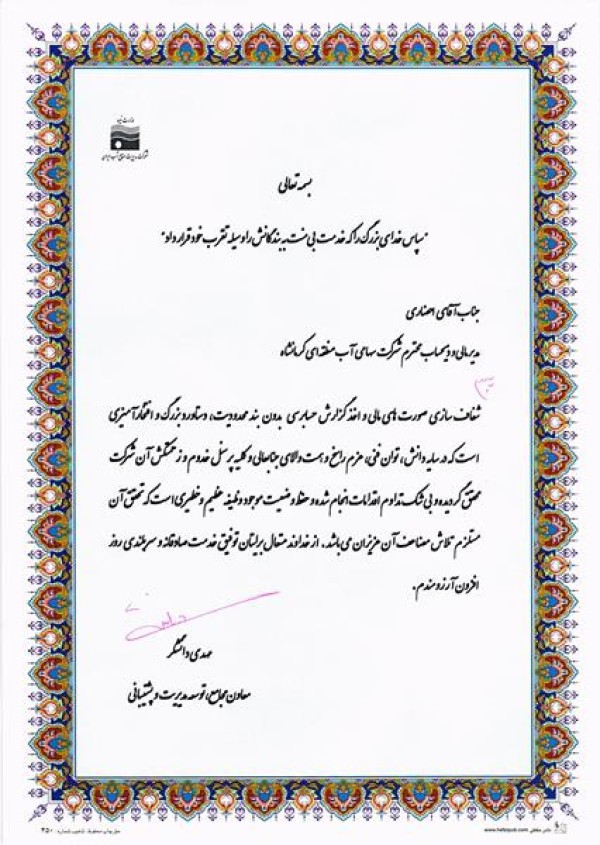 وزارت نیرو
شرکت مدیریت منابع آب ایران
بسمه تعالی
"سپاس خدای بزرگ را که خدمت بی منت به بندگانش را وسیله تقرب خود قرار داد"
جناب آقای
مدیر مالی و ذیحساب محترم شرکت سهامی آب منطقه ای کرمانشاه
شفاف سازی صورت های مالی و اخذ گزارش حسابرسی بدون بند محدودیت، دستاورد بزرگ و افتخار آمیزی
است که در سایه دانش، توان فنی، عزم راسخ و همت والای جنابعالی و کلیه پرسنل خدوم و زحمتکش آن شرکت
محقق گردیده و بی شک تداوم اقدامات انجام شده و حفظ وضعیت موجود وظیفه عظیم و خطیری است که تحقق آن
مستلزم تلاش مضاعف آن عزیزان می باشد. از خداوند متعال برایتان توفیق خدمت صادقانه و سربلندی روز
افزون آرزومندم.
مهدی
معاون مجامع، توسعه مدیریت و پشتیبانی
حق چاپ محفوظ
۳۵۰